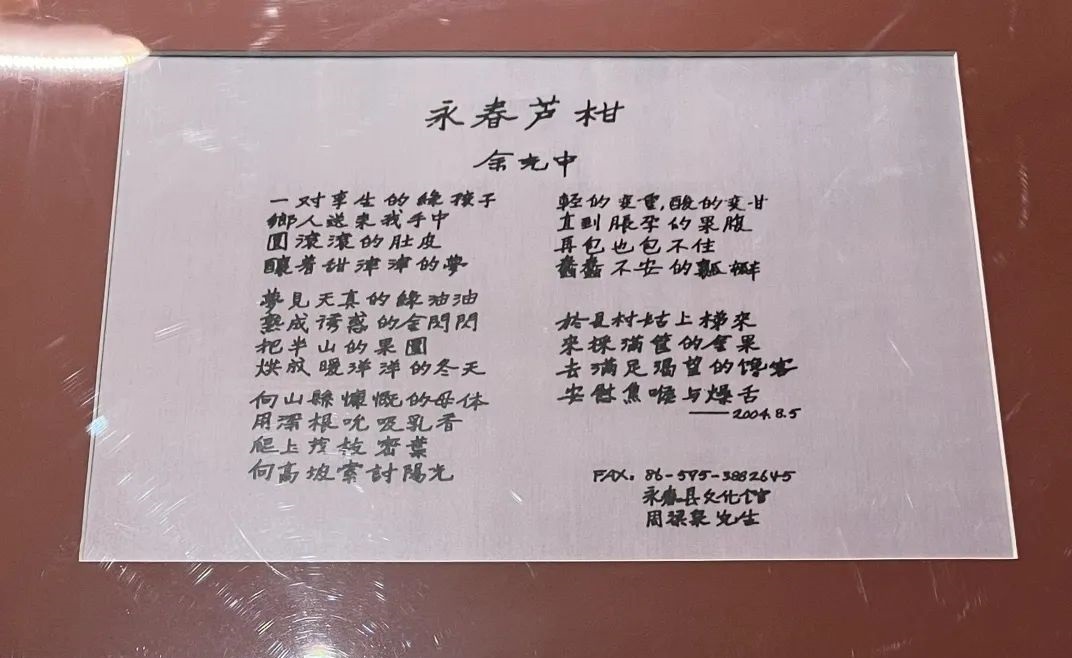 永春芦柑
余光中
一对孪生的綠孩子
鄉人送来我手中
圓滾滾的肚皮
釀着甜津津的夢
夢見天真的綠油油
熟成诱惑的金閃閃
把半山的果園
烘成暖洋洋的冬天
向山縣慷慨的母体
用深根吮吸乳香
爬上茂枝密葉
向高坡索討陽光
輕的变重，酸的变甘
直到脹孕的果腹
再包也包不住
蠢蠢不安的瓢瓣
於是村姑上梯來
來採滿筐的金果
去滿足渴望的馋客
安慰焦喉与燥舌
——2004.8.5
FAX. 86-595-3882645
永春县文化馆
周梁泉先生